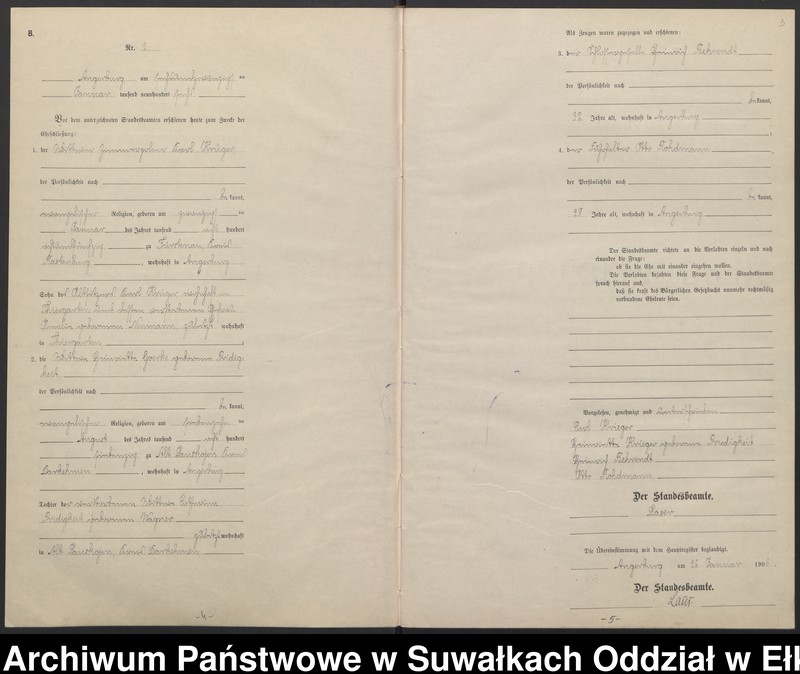 B.
Nr. 2
Angerburg am sechsundzwanzigsten
Januar tausend neunhundert sechs
Vor dem unterzeichneten Standesbeamten erschienen heute zum Zwecke der
Eheschließung:
1. der Witwer Zimmergeselle Karl Krieger
der Persönlichkeit nach
be kannt,
evangelischer Religion, geboren am zwanzigsten
Januar des Jahres tausend acht hundert
zu Fürstenau, Kreis
Rastenburg, wohnhaft in Angerburg
Sohn des Karl Krieger
Thiergarten und dessen verstorbenen Ehefrau
Amalie geborenen Neumann, zuletzt wohnhaft
in Thiergarten
2. die Witwe Henriette geborene Friedig-
keit
der Persönlichkeit nach
be kannt,
evangelischer Religion, geboren am siebenzehnten
August des Jahres tausend acht hundert
zu Alt Kreis
Darkehmen, wohnhaft in Angerburg
Tochter der verstorbenen Wittwe Catharina
Friedigkeit geborenen Wagner
zuletzt wohnhaft
in Alt Kreis Darkehmen
-4-
3
Als Zeugen waren zugezogen und erschienen:
3. der Schlossergeselle Heinrich Rehwendt
der Persönlichkeit nach
be kannt,
32 Jahre alt, wohnhaft in Angerburg
4. der Otto Rohdmann
der Persönlichkeit nach
be kannt,
27 Jahre alt, wohnhaft in Angerburg
Der Standesbeamte richtete an die Verlobten einzeln und nach
einander die Frage:
ob sie die Ehe mit einander eingehen wollen.
Die Verlobten bejahten diese Frage und der Standesbeamte
sprach hierauf aus,
daß sie kraft des Bürgerlichen Gesetzbuchs nunmehr rechtmäßig
verbundene Eheleute seien.
Vorgelesen, genehmigt und unterschrieben
Karl Krieger
Henriette Krieger geborene Friedigkeit
Heinrich Rehwendt
Otto Rohdmann
Der Standesbeamte.
Laser
Die Übereinstimmung mit dem Hauptregister beglaubigt.
Angerburg am 26 Januar 1906.
Der Standesbeamte.
Laser
-5-
Archiwum Państwowe w Suwałkach Oddział w Ełk